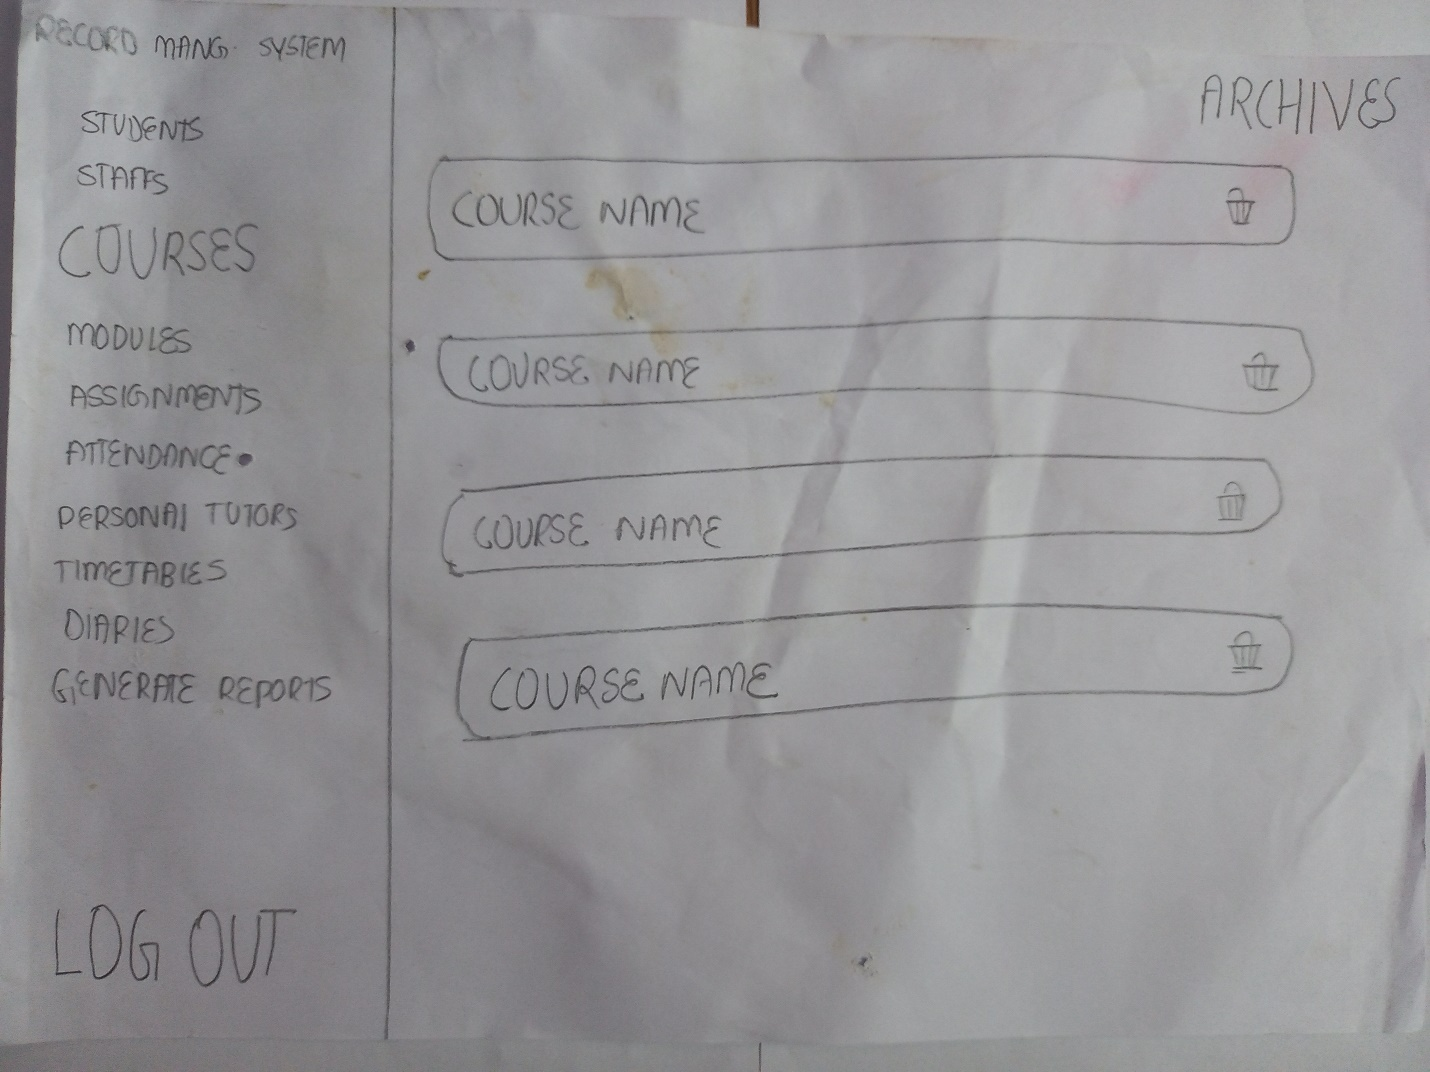 RECORD MANG. SYSTEM
STUDENTS
STAFFS
COURSES
MODULES
ASSIGNMENTS
ATTENDANCE
PERSONAL TUTORS
TIMETABLES
DIARIES
GENERATE REPORTS
LOG OUT
ARCHIVES
COURSE NAME
COURSE NAME
COURSE NAME
COURSE NAME